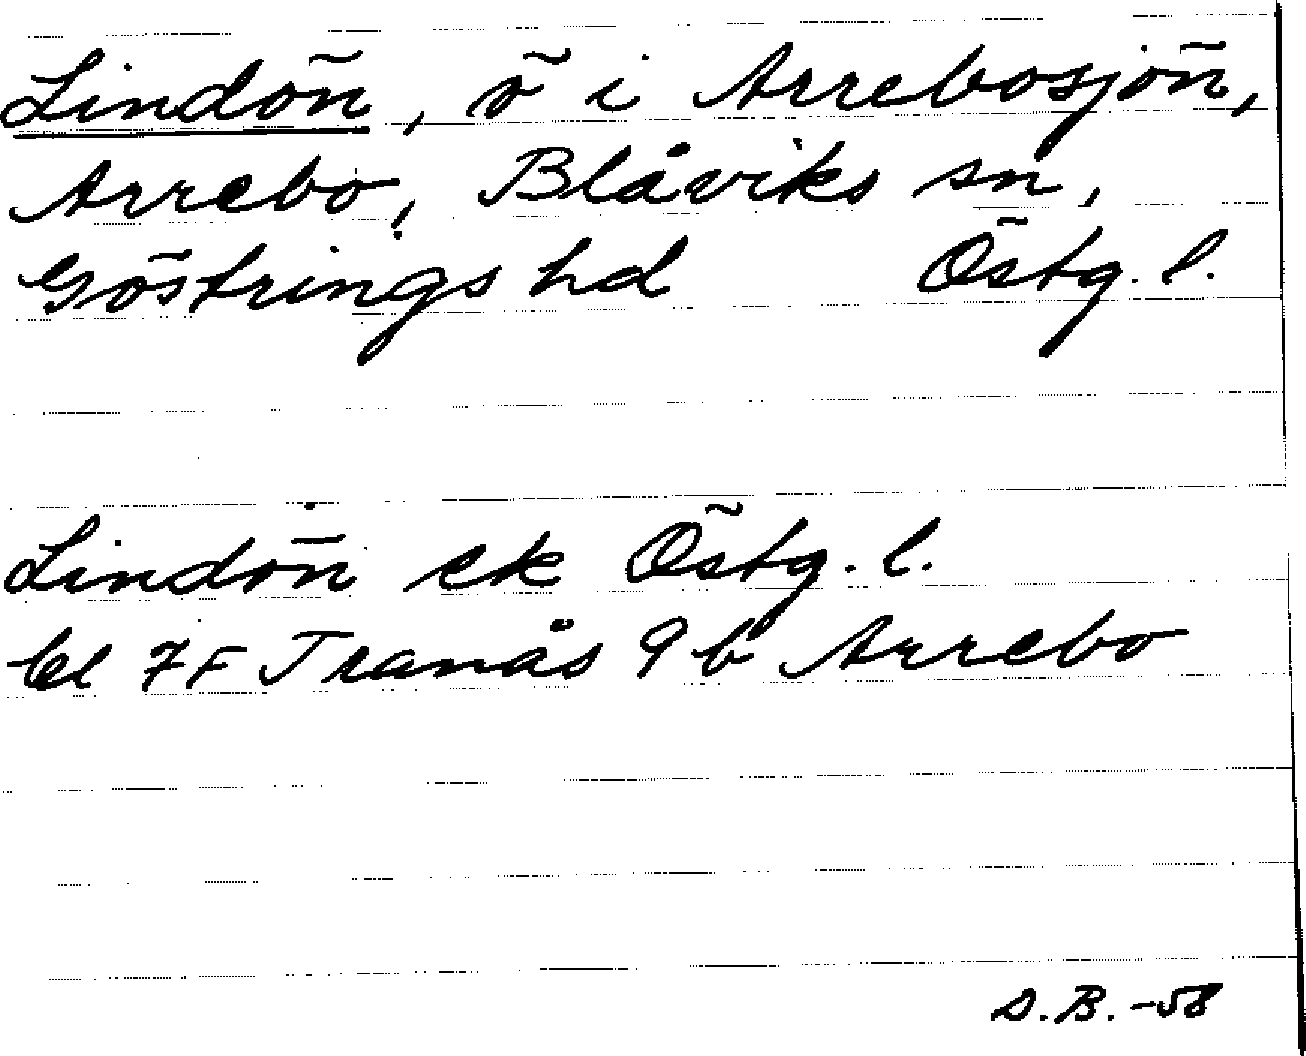 Lindön, ö i Arrebosjön,
Arrebo, Blåviks sn,
Göstrings hd Östg. l.
Lindön ek Östg. l.
bl 7F Tranås 9 b Arrebo
S.B. -58